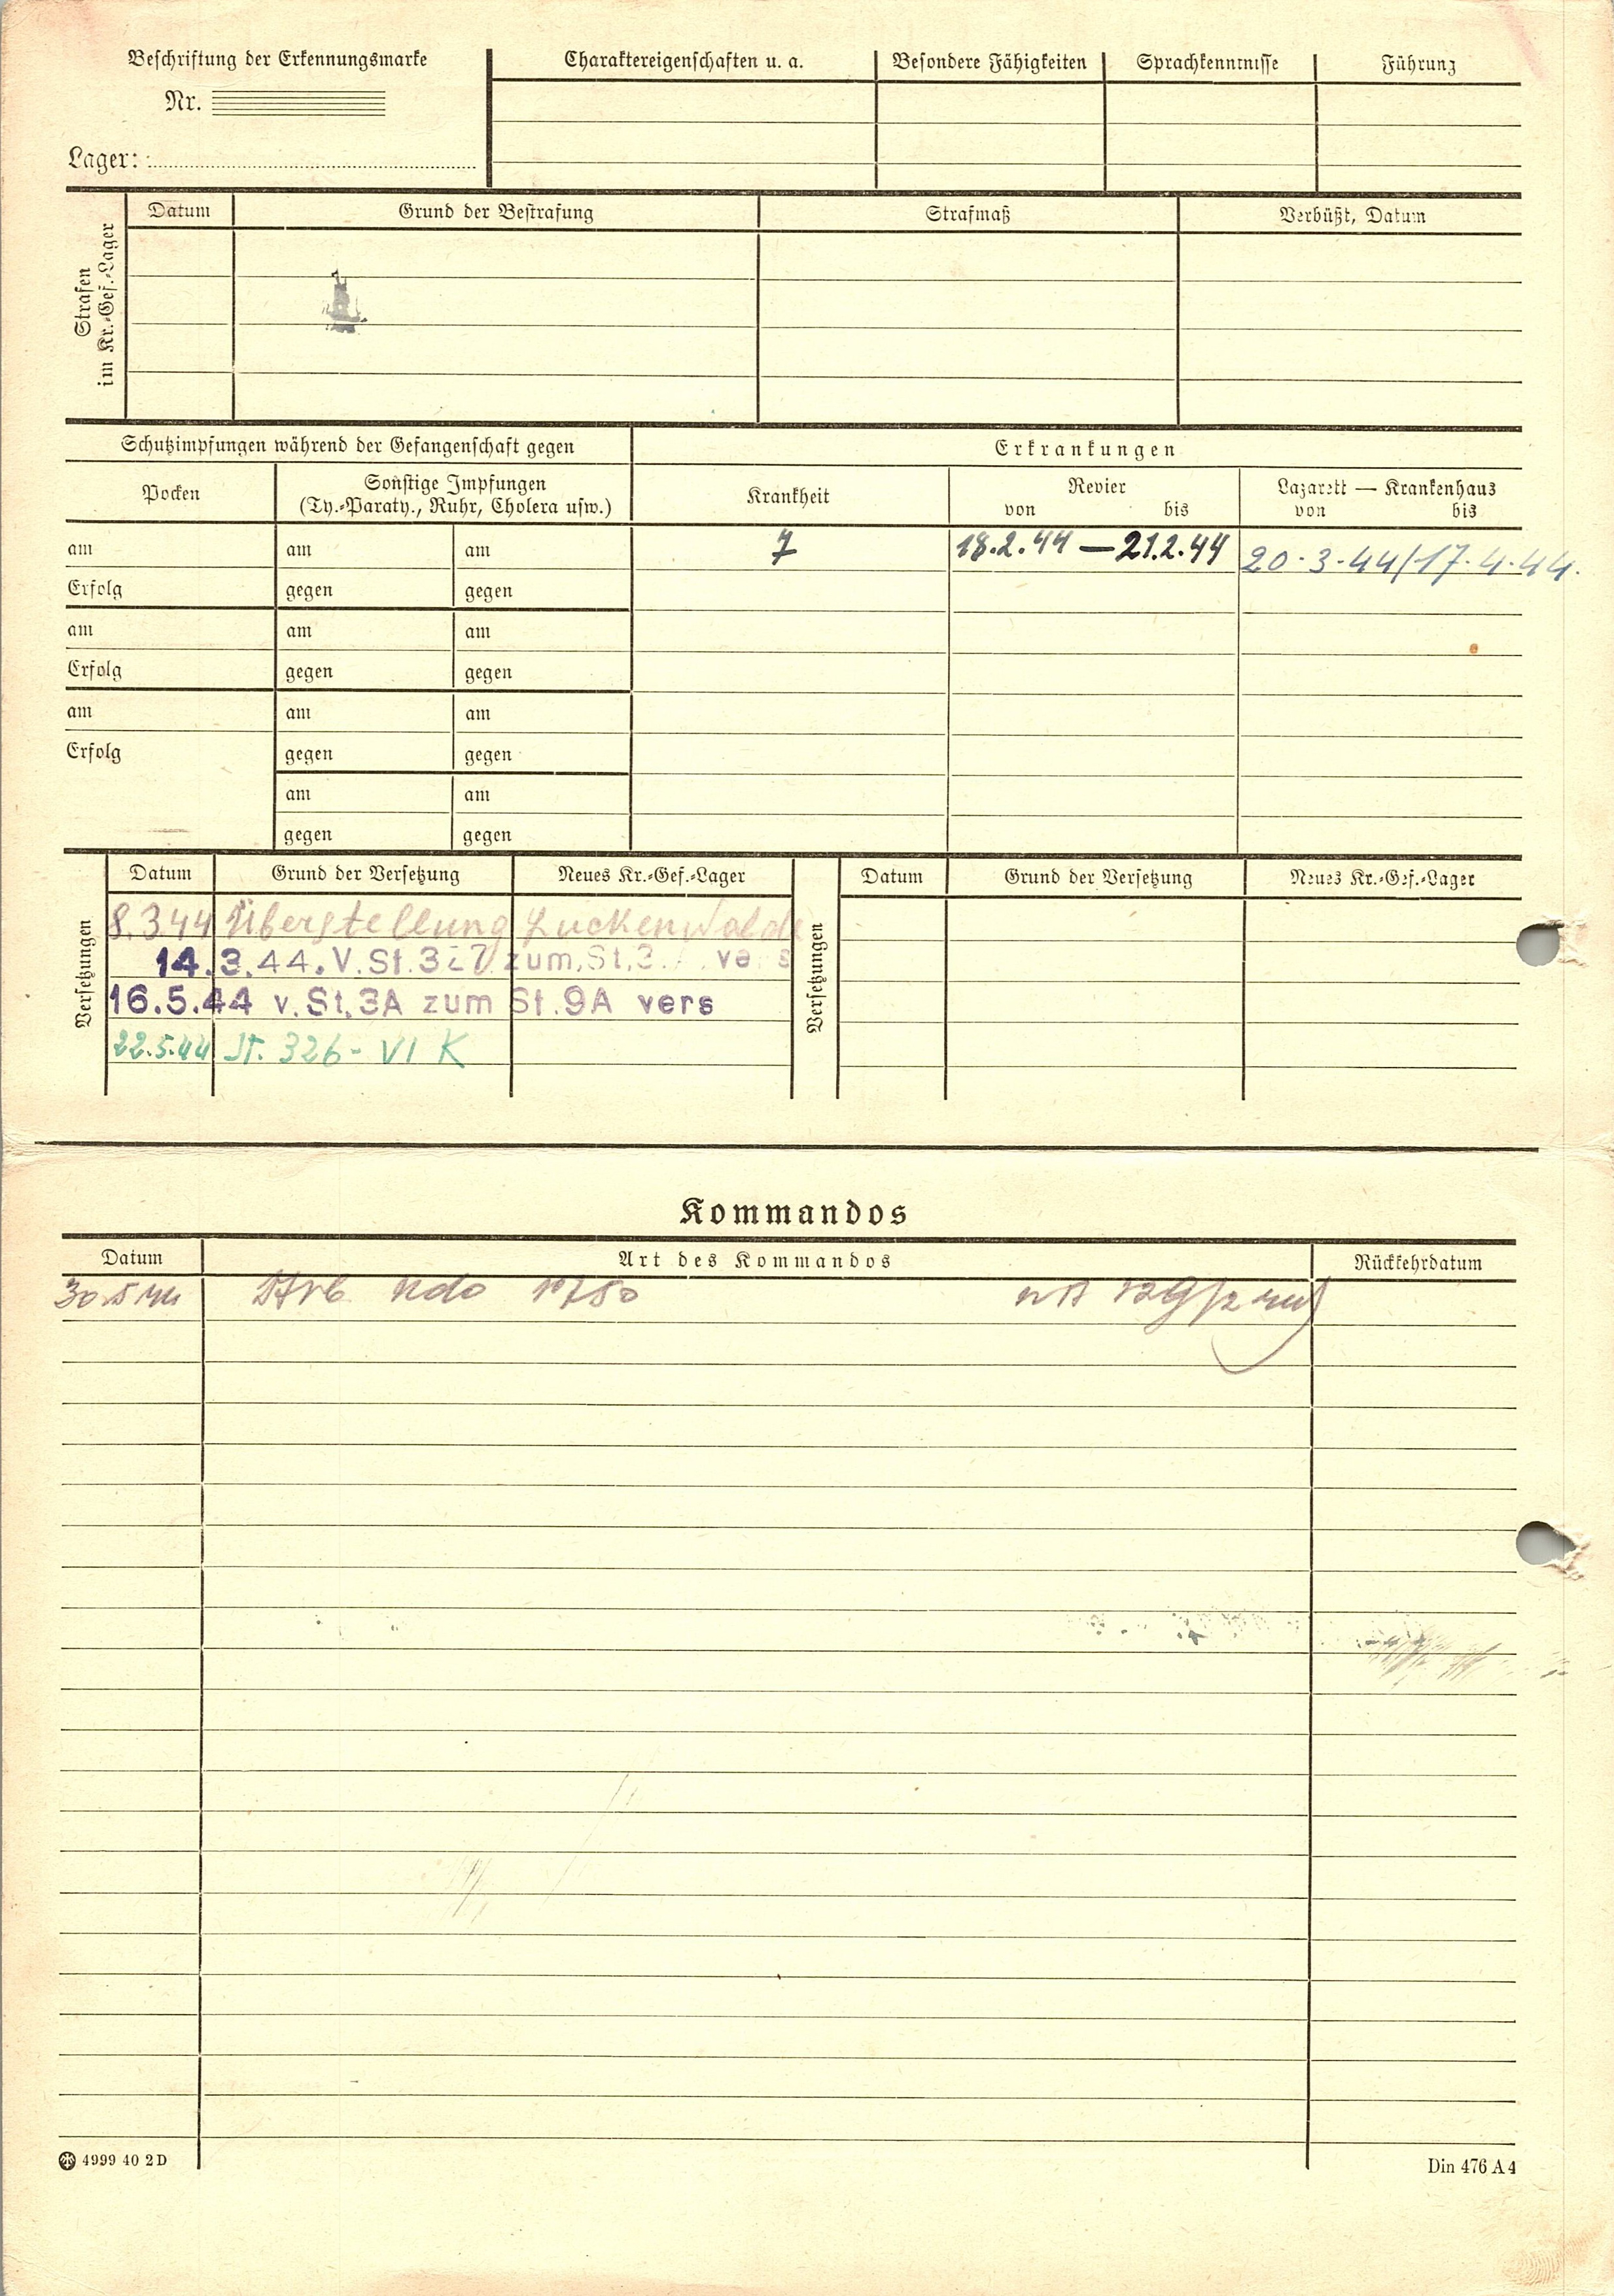 Beschriftung der Erkennungsmarke Charaktereigenschaften u. a. Besondere Fähigkeiten Sprachkenntnisse Führung
Nr.
Lager:
Strafen
im Kr.-Gef.-Lager
Datum Grund der Bestrafung Strafmaß Verbüßt, Datum
Schutzimpfungen während der Gefangenschaft gegen Erkrankungen
Pocken Sonstige Impfungen Krankheit Revier Lazarett — Krankenhaus
(Ty.-Paraty., Ruhr, Cholera usw.) von bis von bis
am am am 7 18.2.44 — 21.2.44 20.3.44/17.4.44.
Erfolg gegen gegen
am am am
Erfolg gegen gegen
am am am
Erfolg gegen gegen
am am
gegen gegen
Versetzungen
Datum Grund der Versetzung Neues Kr.-Gef.-Lager
8.3.44 Überstellung Luckenwalde
14.3.44. V. St. zum St. 3 vers
16.5.44 v. St. 3A zum St. 9A vers
22.5.44 St. 326 - VI K
Versetzungen
Datum Grund der Versetzung Neues Kr.-Gef.-Lager
Kommandos
Datum Art des Kommandos Rückkehrdatum
30.5.44 Kdo
4999 40 2D Din 476 A 4